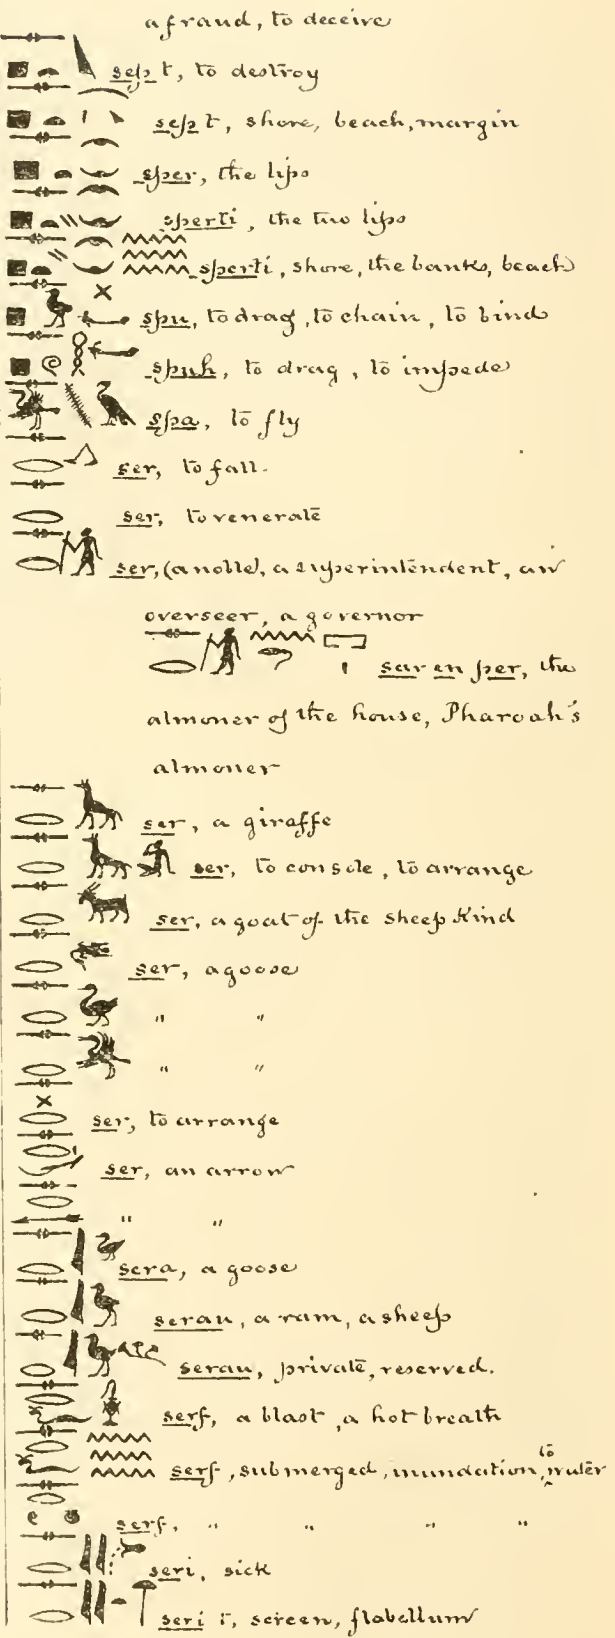 a fraud, to deceive
sep t, to destroy
sep t, shore, beach, margin
sper, the lips
sperti, the two lips
sperti, shore, the banks, beach
spu, to drag, to chain, to bind
spuh, to drag, to impede
spa, to fly
ser, to fall.
ser, to venerate
ser, (a noble), a superintendent, an
overseer, a governor
sar en per, the
almoner of the house, Pharoah's
almoner
ser, a giraffe
ser, to console, to arrange
ser, a goat of the sheep kind
ser, a goose
" "
" "
ser, to arrange
ser, an arrow
" "
sera, a goose
serau, a ram, a sheep
serau, private, reserved.
serf, a blast, a hot breath
serf, submerged, inundation, to water
serf, " " " "
seri, sick
seri t, screen, flabellum